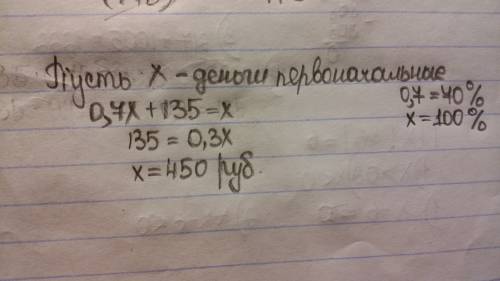 Пусть x - деньги первоначальные
0,7x + 135 = x
135 = 0,3x
x = 450 руб.
0,7 = 70%
x = 100%